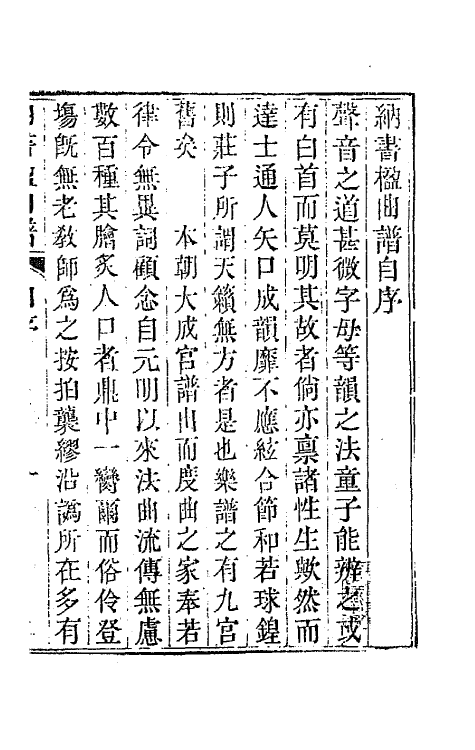 納書楹曲譜自序
聲音之道甚微字母等韻之法童子能辨之或
有白首而莫明其故者倘亦稟諸性生歟然而
達士通人矢口成韻靡不應絃合節和若球鍠
則莊子所謂天籟無方者是也樂譜之有九宮
舊矣　本朝大成宮譜出而度曲之家奉若
律令無異詞顧念自元明以來法曲流傳無慮
數百種其膾炙人口者鼎中一臠爾而俗伶登
塲旣無老敎師爲之按拍襲繆沿譌所在多有